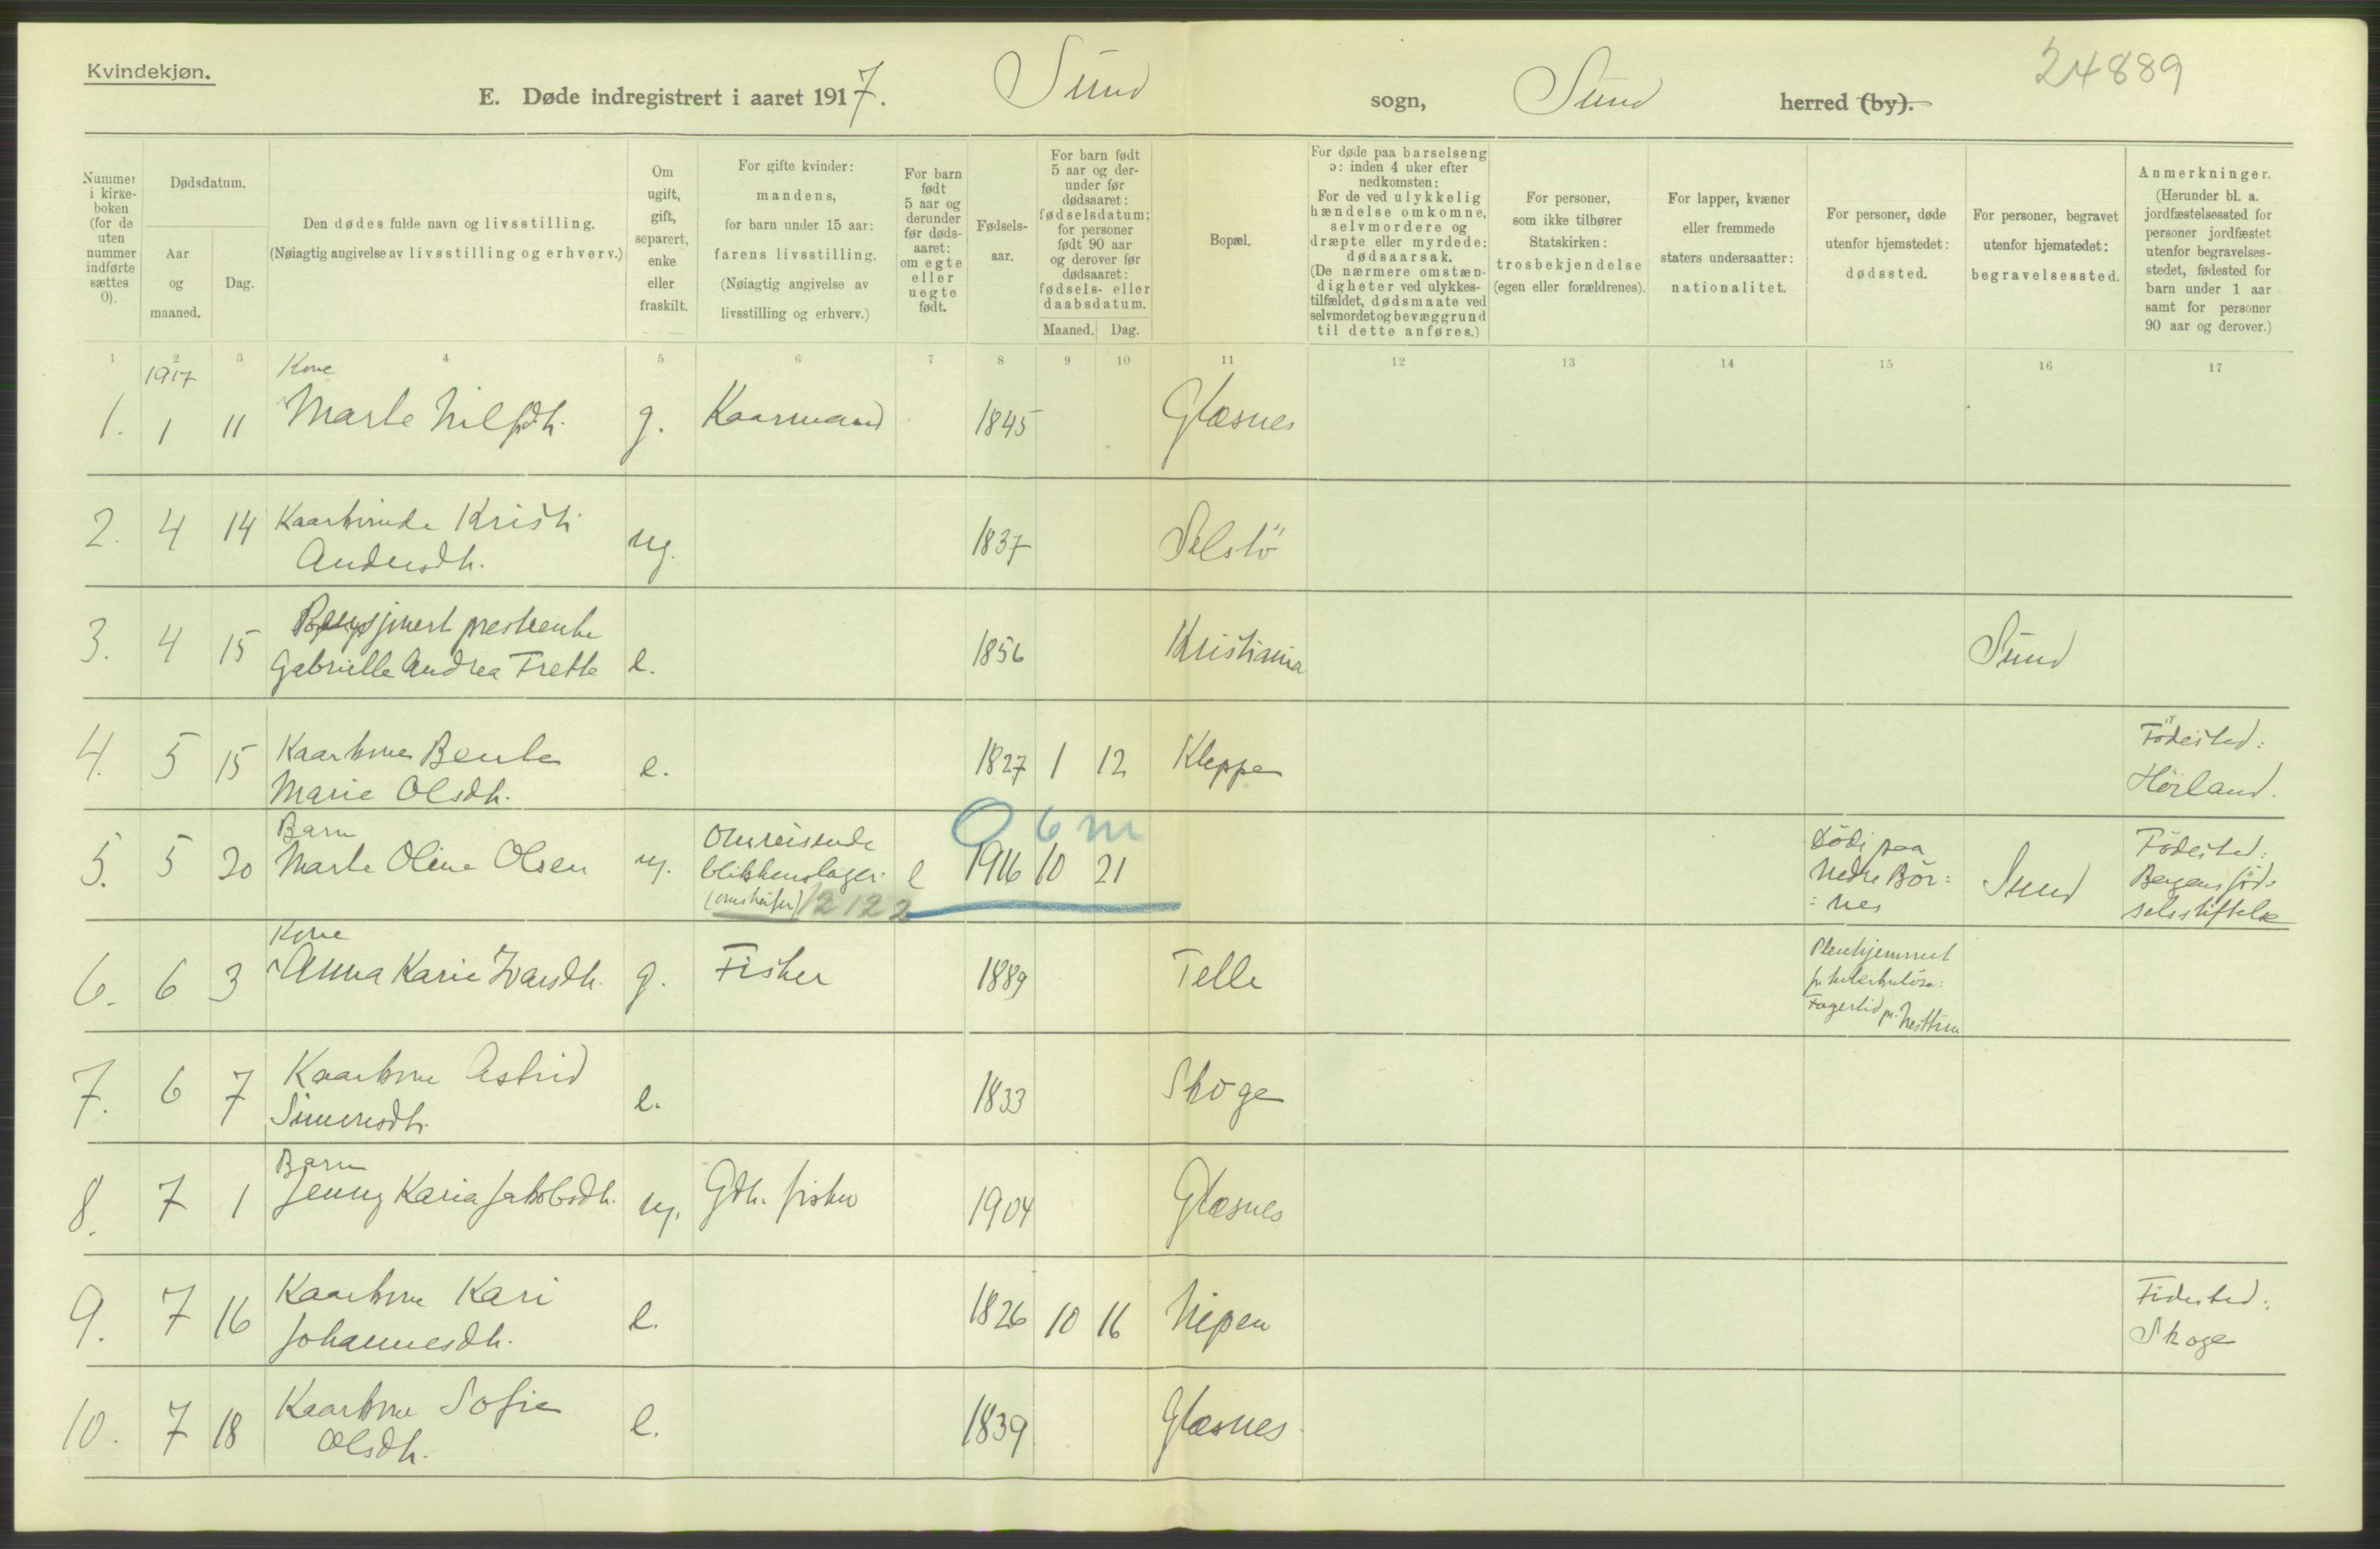 Kvindekjøn.
24889
E. Døde indregistrert i aaret 1917. Sund sogn, Sund herred (by).
Nummer
i kirke-
boken
(for de
uten
nummer
indførte
sættes
0).
Dødsdatum.
Aar
og
maaned.
Dag.
Den dødes fulde navn og livsstilling.
(Nøiagtig angivelse av livsstilling og erhverv.)
Om
ugift,
gift,
separert,
enke
eller
fraskilt.
For gifte kvinder:
mandens,
for barn under 15 aar:
farens livsstilling.
(Nøiagtig angivelse av
livsstilling og erhverv.)
For barn
født
5 aar og
derunder
før døds-
aaret:
om egte
eller
uegte
født.
Fødsels-
aar.
For barn født
5 aar og der-
under før
dødsaaret:
fødselsdatum;
for personer
født 90 aar
og derover før
dødsaaret:
fødsels- eller
daabsdatum.
Maaned. Dag.
Bopæl.
For døde paa barselseng
ɔ: inden 4 uker efter
nedkomsten:
For de ved ulykkelig
hændelse omkomne,
selvmordere og
dræpte eller myrdede:
dødsaarsak.
(De nærmere omstæn-
digheter ved ulykkes-
tilfældet, dødsmaate ved
selvmordet og bevæggrund
til dette anføres.)
For personer,
som ikke tilhører
Statskirken:
trosbekjendelse
(egen eller forældrenes).
For lapper, kvæner
eller fremmede
staters undersaatter:
nationalitet.
For personer, døde
utenfor hjemstedet:
dødssted.
For personer, begravet
utenfor hjemstedet:
begravelsessted.
Anmerkninger.
(Herunder bl. a.
jordfæstelsessted for
personer jordfæstet
utenfor begravelses-
stedet, fødested for
barn under 1 aar
samt for personer
90 aar og derover.)
1 2 3 4 5 6 7 8 9 10 11 12 13 14 15 16 17
1917 Kone
1. 1 11 Marte Nilsdh. g. Kaarmand 1845 Glæsnes
2. 4 14 Kaarkvinde Kristi
Andersdh. ug. 1837 Selstö
3. 4 15 presteenke
Gabrielle Andrea Trette e. 1856 Kristiania Sund
4. 5 15 Kaarkone Bente
Marie Olsdh. e. 1827 1 12 Kleppe Födested:
Hörland.
0 6 m
5. 5 20 Barn
Marte Oline Olsen ug. Omreisende
blikkenslager
12122 e 1916 10 21 Död paa
Nedre Bör=
=nes Sund Födested:
Bergens föd-
selsstiftelse
6. 6 3 Kone
Anna Karie Ivarsdh. g. Fisker 1889 Telle Pleiehjemmet
for tuberkulöse:
Fagerlid pr. Nesttun
7. 6 7 Kaarkone Astrid
Simonsdh. e. 1833 Skoge
8. 7 1 Barn
Jenny Karia Jakobsdh. ug. Gdh. fisker 1904 Glæsnes
9. 7 16 Kaarkone Kari
Johannesdh. e. 1826 10 16 Nipen Födested:
Skoge
10. 7 18 Kaarkone Sofie
Olsdh. e. 1839 Glæsnes